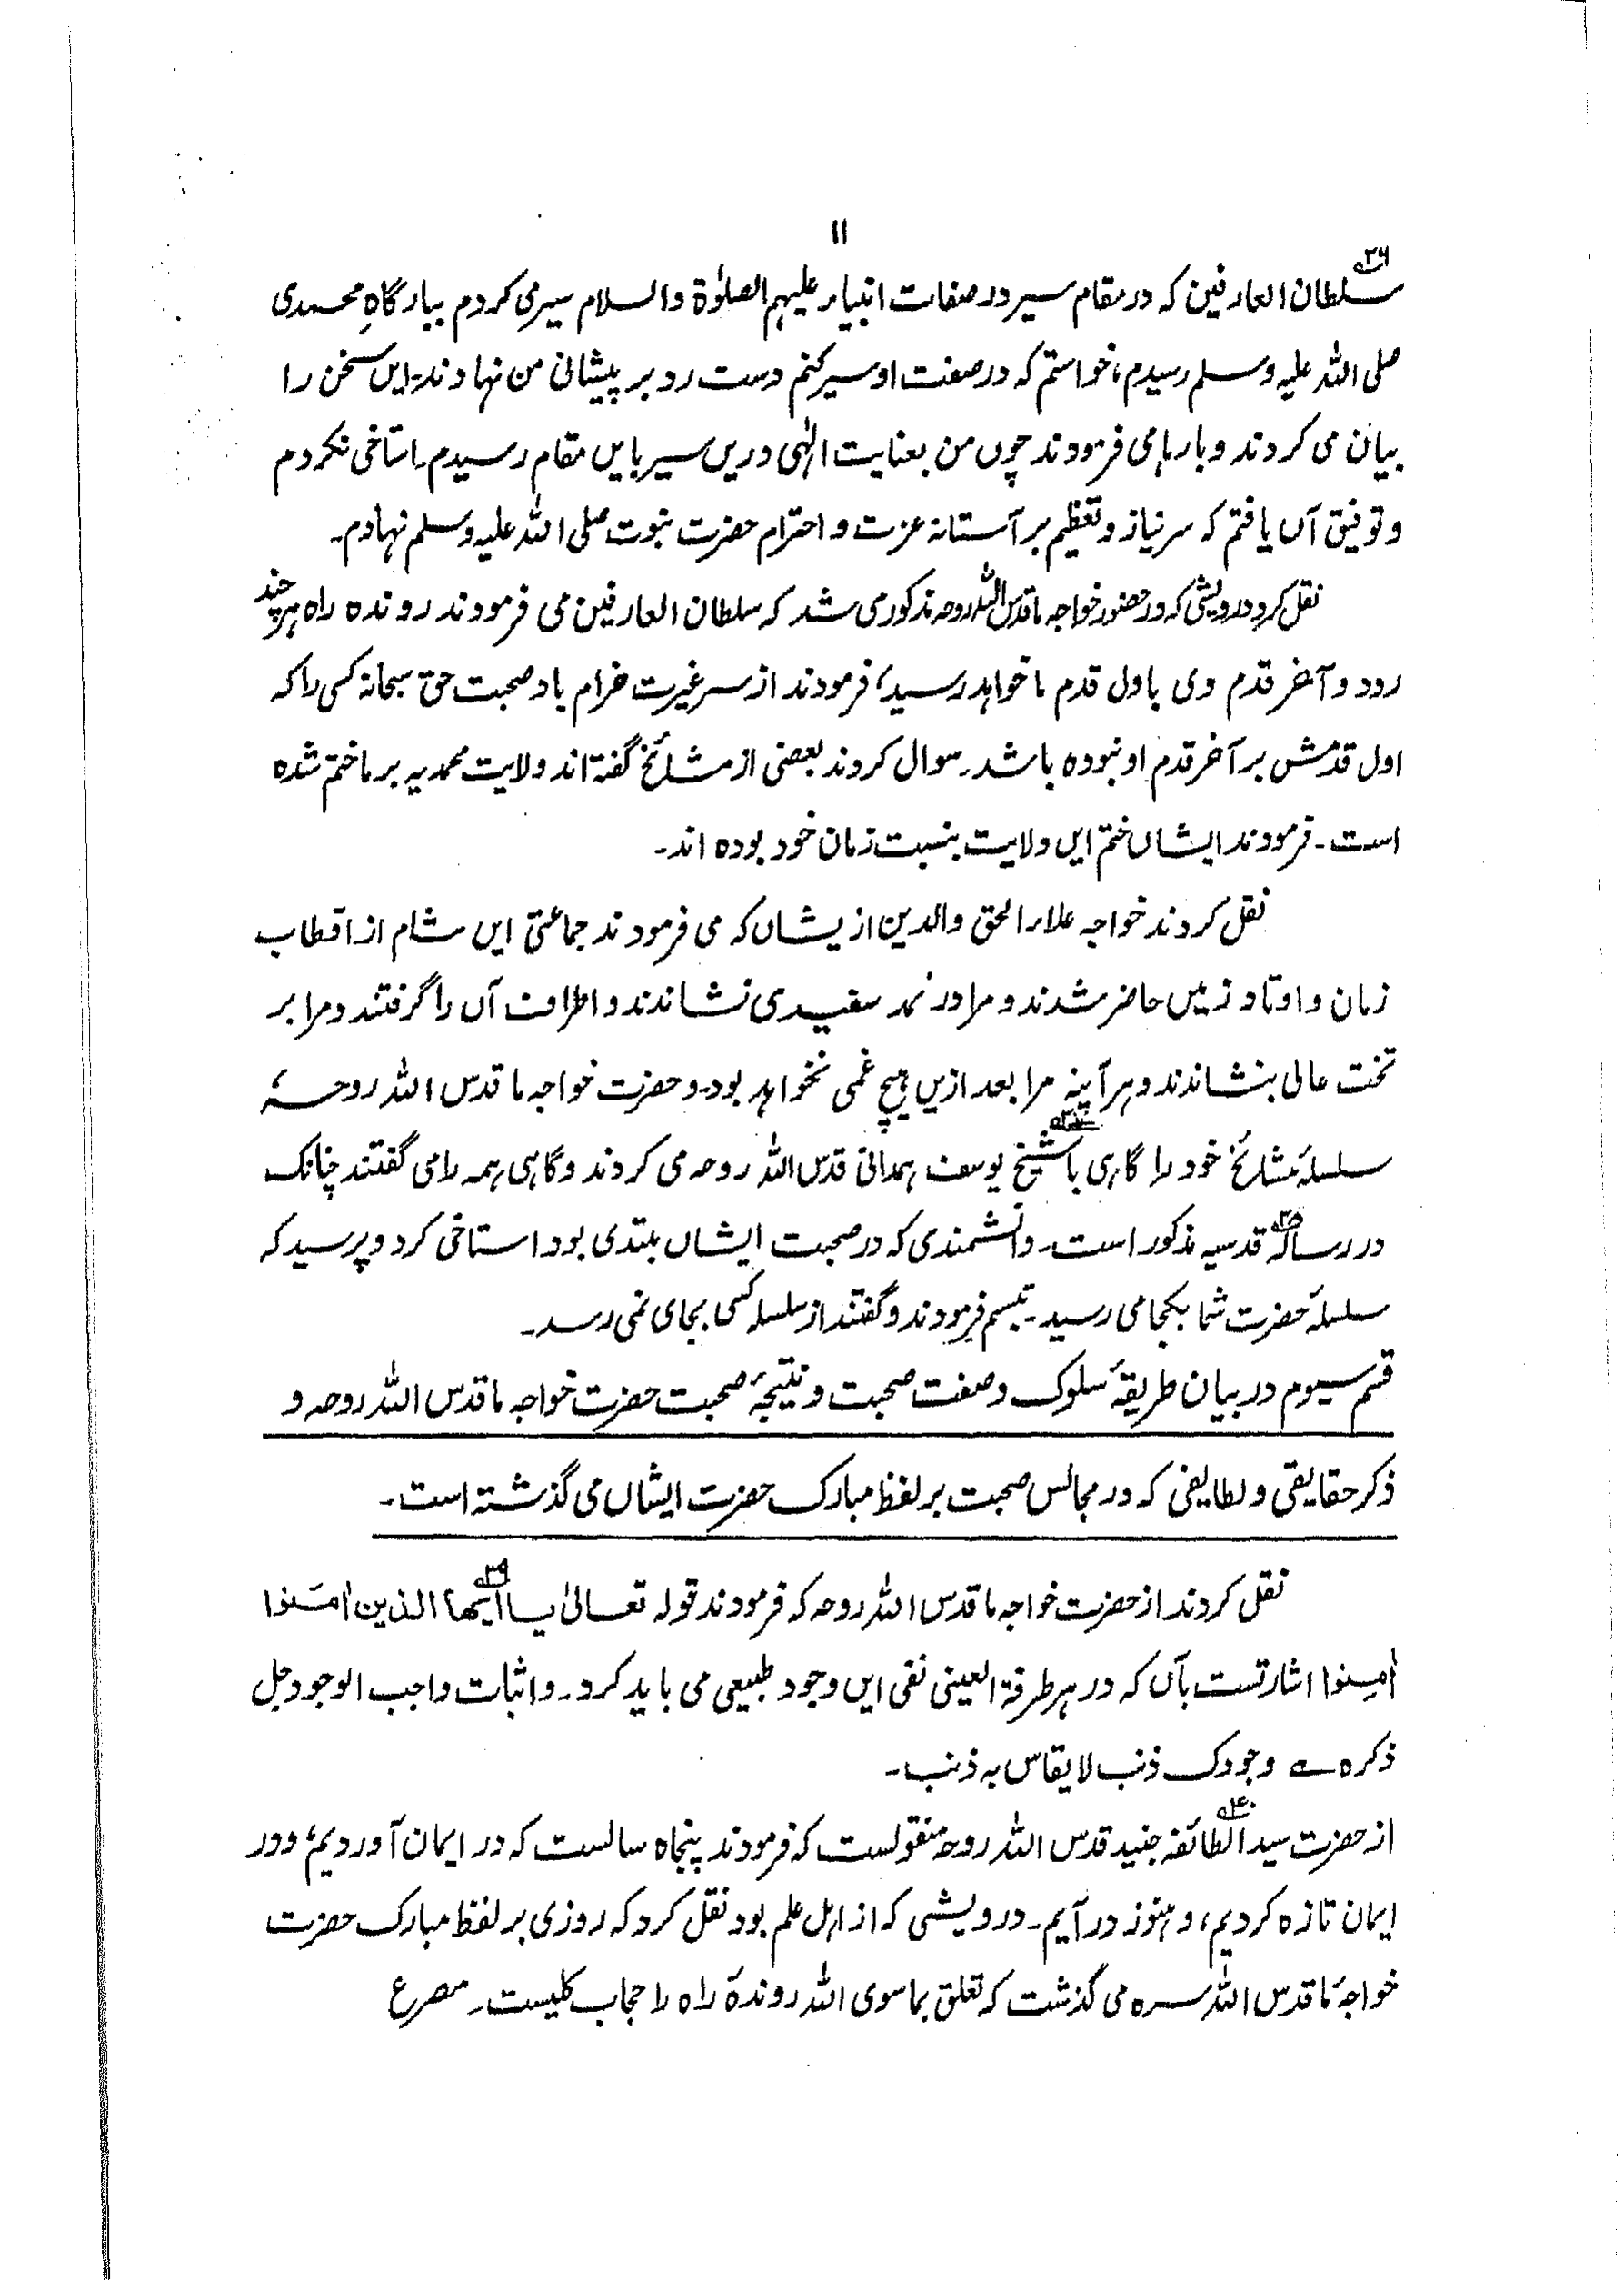 ۱۱
سلطان العارفین۳۶ که در مقام سیر در صفات انبیاء علیہم الصلوٰة والسلام سیر می کردم ببارگاہِ محمدی
صلی اللہ علیہ وسلم رسیدم، خواستم که در صفت او سیر کنم دست رد بر پیشانی من نہادند۔ ایں سخن را
بیان می کردند و بارہا می فرمودند چوں من بعنایت الٰہی دریں سیر بایں مقام رسیدم۔ استاخی نکردم
و توفیق آں یافتم که سر نیاز و تعظیم بر آستانہ عزت و احترام حضرت نبوت صلی اللہ علیہ وسلم نہادم۔
نقل کرد درویشی که در حضور خواجہ ما قدس اللہ روحہ مذکور می شد که سلطان العارفین می فرمودند رونده راه ہر چند
رود و آخر قدم وی باول قدم ما خواہد رسید، فرمودند از سر غیرت خرام باد صحبت حق سبحانہ کسی را که
اول قدمش بر آخر قدم او نبوده باشد۔ سوال کردند بعضی از مشائخ گفتہ اند ولایت محمدیہ بر ما ختم شده
است۔ فرمودند ایشاں ختم ایں ولایت بنسبت زمان خود بوده اند۔
نقل کردند خواجہ علاء الحق والدین از یشاں که می فرمودند جماعتی ایں شام از اقطاب
زمان و اوتاد زمیں حاضر شدند و مرا در نمد سفیدی نشاندند و اطراف آں را گرفتند و مرا بر
تخت عالی بنشاندند و ہر آینہ مرا بعد ازیں ہیچ غمی نخواہد بود۔ و حضرت خواجہ ما قدس اللہ روحہ،
سلسلۂ مشائخ خود را گاہی باشیخ۳۷ یوسف ہمدانی قدس اللہ روحہ می کردند و گاہی ہمہ رامی گفتند چنانک
در رسالہ۳۸ قدسیہ مذکور است۔ دانشمندی که در صحبت ایشاں مبتدی بود استاخی کرد و پرسید که
سلسلۂ حضرت شما بکجا می رسید۔ تبسم فرمودند و گفتند از سلسلہ کسی بجای نمی رسد۔
قسم سیوم در بیان طریقۂ سلوک و صفت صحبت و نتیجۂ صحبت حضرت خواجہ ما قدس اللہ روحہ و
ذکر حقایقی و لطایفی که در مجالس صحبت بر لفظ مبارک حضرت ایشاں می گذشتہ است۔
نقل کردند از حضرت خواجہ ما قدس اللہ روحہ که فرمودند قولہ تعالیٰ یا ایھا۳۹ الذین اٰمَنوا
اٰمِنوا اشارتست بآں که در ہر طرفۃ العینی نفی ایں وجود طبیعی می باید کرد۔ و اثبات واجب الوجود جل
ذکره ؎ وجودک ذنب لا یقاس بہ ذنب۔
از حضرت سید الطائفہ۴۰ جنید قدس اللہ روحہ منقولست که فرمودند پنجاه سالست که در ایمان آوردیم، و در
ایمان تازه کردیم، و ہنوز در آیم۔ درویشی که از اہل علم بود نقل کرد که روزی بر لفظ مبارک حضرت
خواجۂ ما قدس اللہ سره می گذشت که تعلق بما سوی اللہ روندۂ راه را حجاب کلیست۔ مصرع